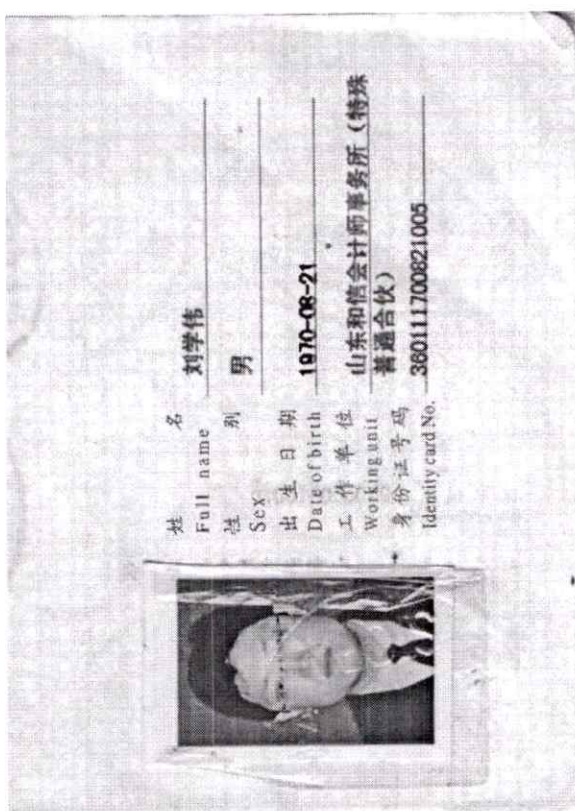 姓 名 刘学伟
Full name
性 别 男
Sex
出 生 日 期 1970-08-21
Date of birth
工 作 单 位 山东和信会计师事务所（特殊
Working unit 普通合伙）
身 份 证 号 码 360111700821005
Identity card No.